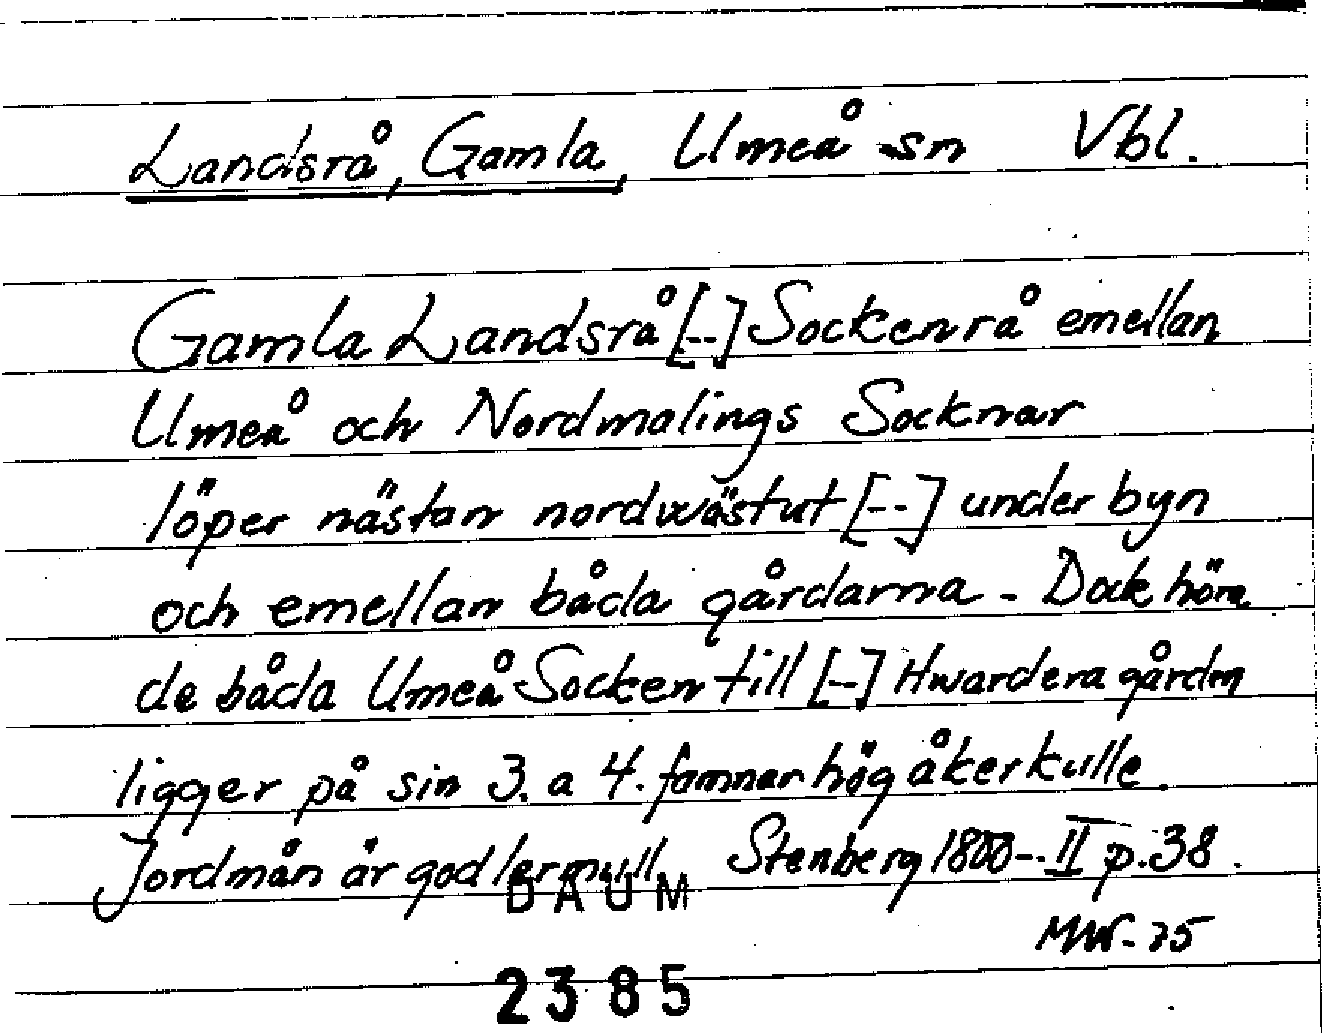 Landsrå, Gamla, Umeå sn Vbl.
Gamla Landsrå [--] Sockenrå emellan
Umeå och Nordmalings Socknar
löper nästan nordwästut [--] under byn
och emellan båda gårdarna - Dock höra
de båda Umeå Socken till [--] Hwardera gården
ligger på sin 3. a 4. famnar hög åkerkulle.
Jordmån är god lermull. Stenberg 1800-- II p. 38.
DAUM
MW-75
2385